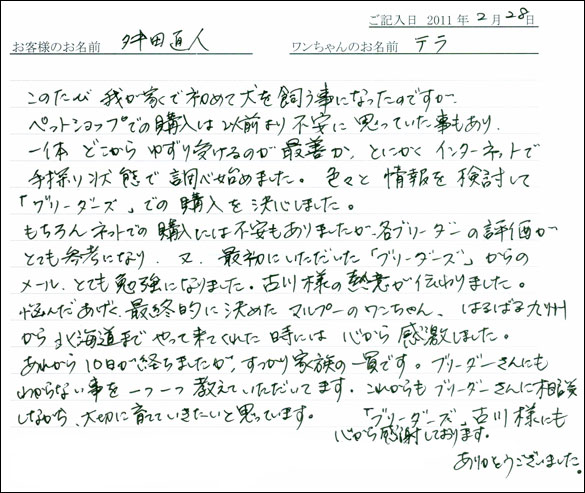 ご記入日 2011 年 2 月 28 日
お客様のお名前 舛田直人 ワンちゃんのお名前 テラ
このたび 我が家で初めて犬を飼う事になったのですが、
ペットショップでの購入は以前より不安に思っていた事もあり、
一体 どこから ゆずり受けるのが 最善か、とにかく インターネットで
手探り状態で調べ始めました。色々と 情報を検討して
「ブリーダーズ」での購入を決心しました。
もちろん ネットでの購入には不安もありましたが、各ブリーダーの評価が
とても参考になり、又、最初にいただいた「ブリーダーズ」からの
メール、とても勉強になりました。古川様の熱意が伝わりました。
悩んだあげく、最終的に決めた マルプーのワンちゃん、はるばる九州
から北海道まで やって来てくれた時には 心から 感激しました。
あれから 10日が経ちましたが、すっかり家族の一員です。ブリーダーさんにも
わからない事を一つ一つ教えていただいてます。これからもブリーダーさんに相談
しながら、大切に育てていきたいと思っています。
「ブリーダーズ」、古川様にも
心から感謝しております。
ありがとうございました。